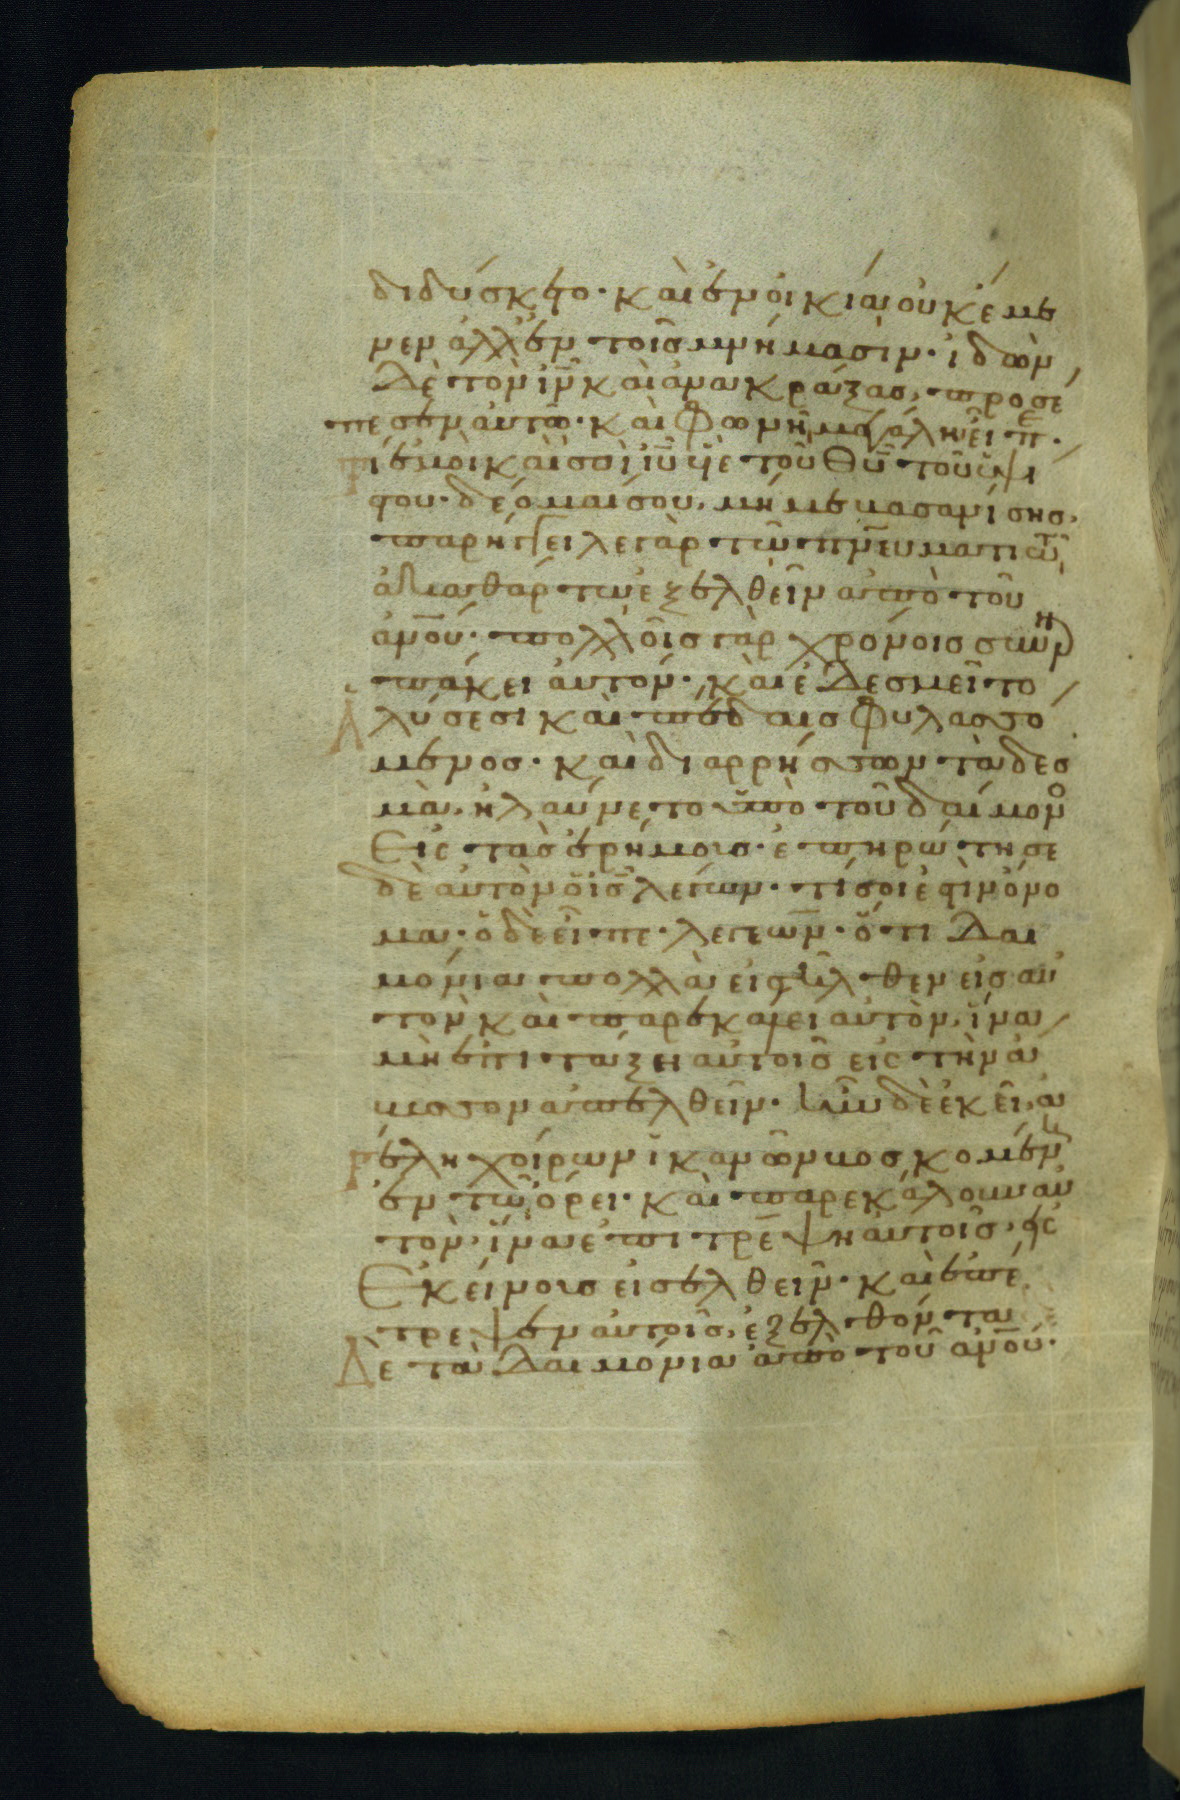 διδύσκετο· καὶ ἐν οἰκία οὐκ ἔμε
νεν ἀλλ' ἐν τοῖς μνήμασιν· ἰδὼν
δὲ τὸν ιν καὶ ἀνακράξας, προσέ
πεσεν αὐτῶ· καὶ φωνῆ μεγάλη εἶπε·
τί ἐμοὶ καὶ σοὶ ιυ υἱὲ τοῦ θυ τοῦ ὑψί
στου· δέομαί σου, μή με βασανίσης,
παρήγγειλε γὰρ τῶ πνευματι τῶ
ἀκαθάρτω ἐξελθεῖν ἀπὸ τοῦ
ανου· πολλοῖς γὰρ χρόνοις συνηρ
πάκει αὐτόν· καὶ ἐδεσμεῖτο
ἁλύσεσι καὶ πέδαις φυλασσό
μενος· καὶ διαρρήσσων τὰ δεσ
μὰ, ἠλαύνετο ὑπὸ τοῦ δαίμονο
εἰς τὰς ἐρήμους· ἐπηρώτησε
δὲ αὐτὸν ὁ ις λέγων· τί σοι ἐστὶν ὄνο
μα· ὁ δὲ εἶπε· λεγεών· ὅτι δαι
μόνια πολλὰ εἰσῆλθεν εἰς αὐ
τὸν καὶ παρεκάλει αὐτὸν, ἵνα
μὴ ἐπιτάξη αὐτοῖς εἰς τὴν ἄ
βυσσον ἀπελθεῖν· ἦν δὲ ἐκεῖ ἀ
γέλη χοίρων ἱκανῶν βοσκομένη
ἐν τῶ ὄρει· καὶ παρεκάλουν αὐ
τὸν, ἵνα ἐπιτρέψη αὐτοῖς, εἰς
ἐκείνους εἰσελθεῖν· καὶ ἐπέ
τρεψεν αὐτοῖς, ἐξελθόντα
δὲ τὰ δαιμόνια ἀπὸ τοῦ ανου·